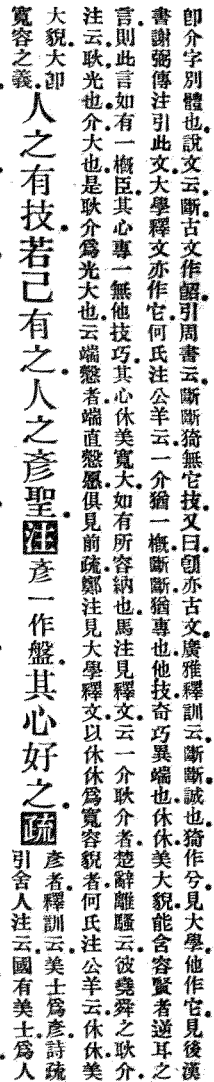 卽介字別體也說文云斷古文作𠸿引周書云斷斷猗無它技又曰𠧢亦古文廣雅釋訓云斷斷誠也猗作兮見大學他作它見後漢
書謝弼傳注引此文大學釋文亦作它何氏注公羊云一介猶一槪斷斷猶專也他技奇巧異端也休休美大貌能含容賢者逆耳之
言則此言如有一槪臣其心專一無他技巧其心休美寬大如有所容納也馬注見釋文云一介耿介者楚辭離騷云彼堯舜之耿介
注云耿光也介大也是耿介爲光大也云端慤者端直慤愿俱見前疏鄭注見大學釋文以休休爲寬容貌者何氏注公羊云休休美
大貌大卽
寬容之義
人之有技若己有之人之彥聖注彥一作盤其心好之疏
彥者釋訓云美士爲彥詩疏
引舍人注云國有美士爲人